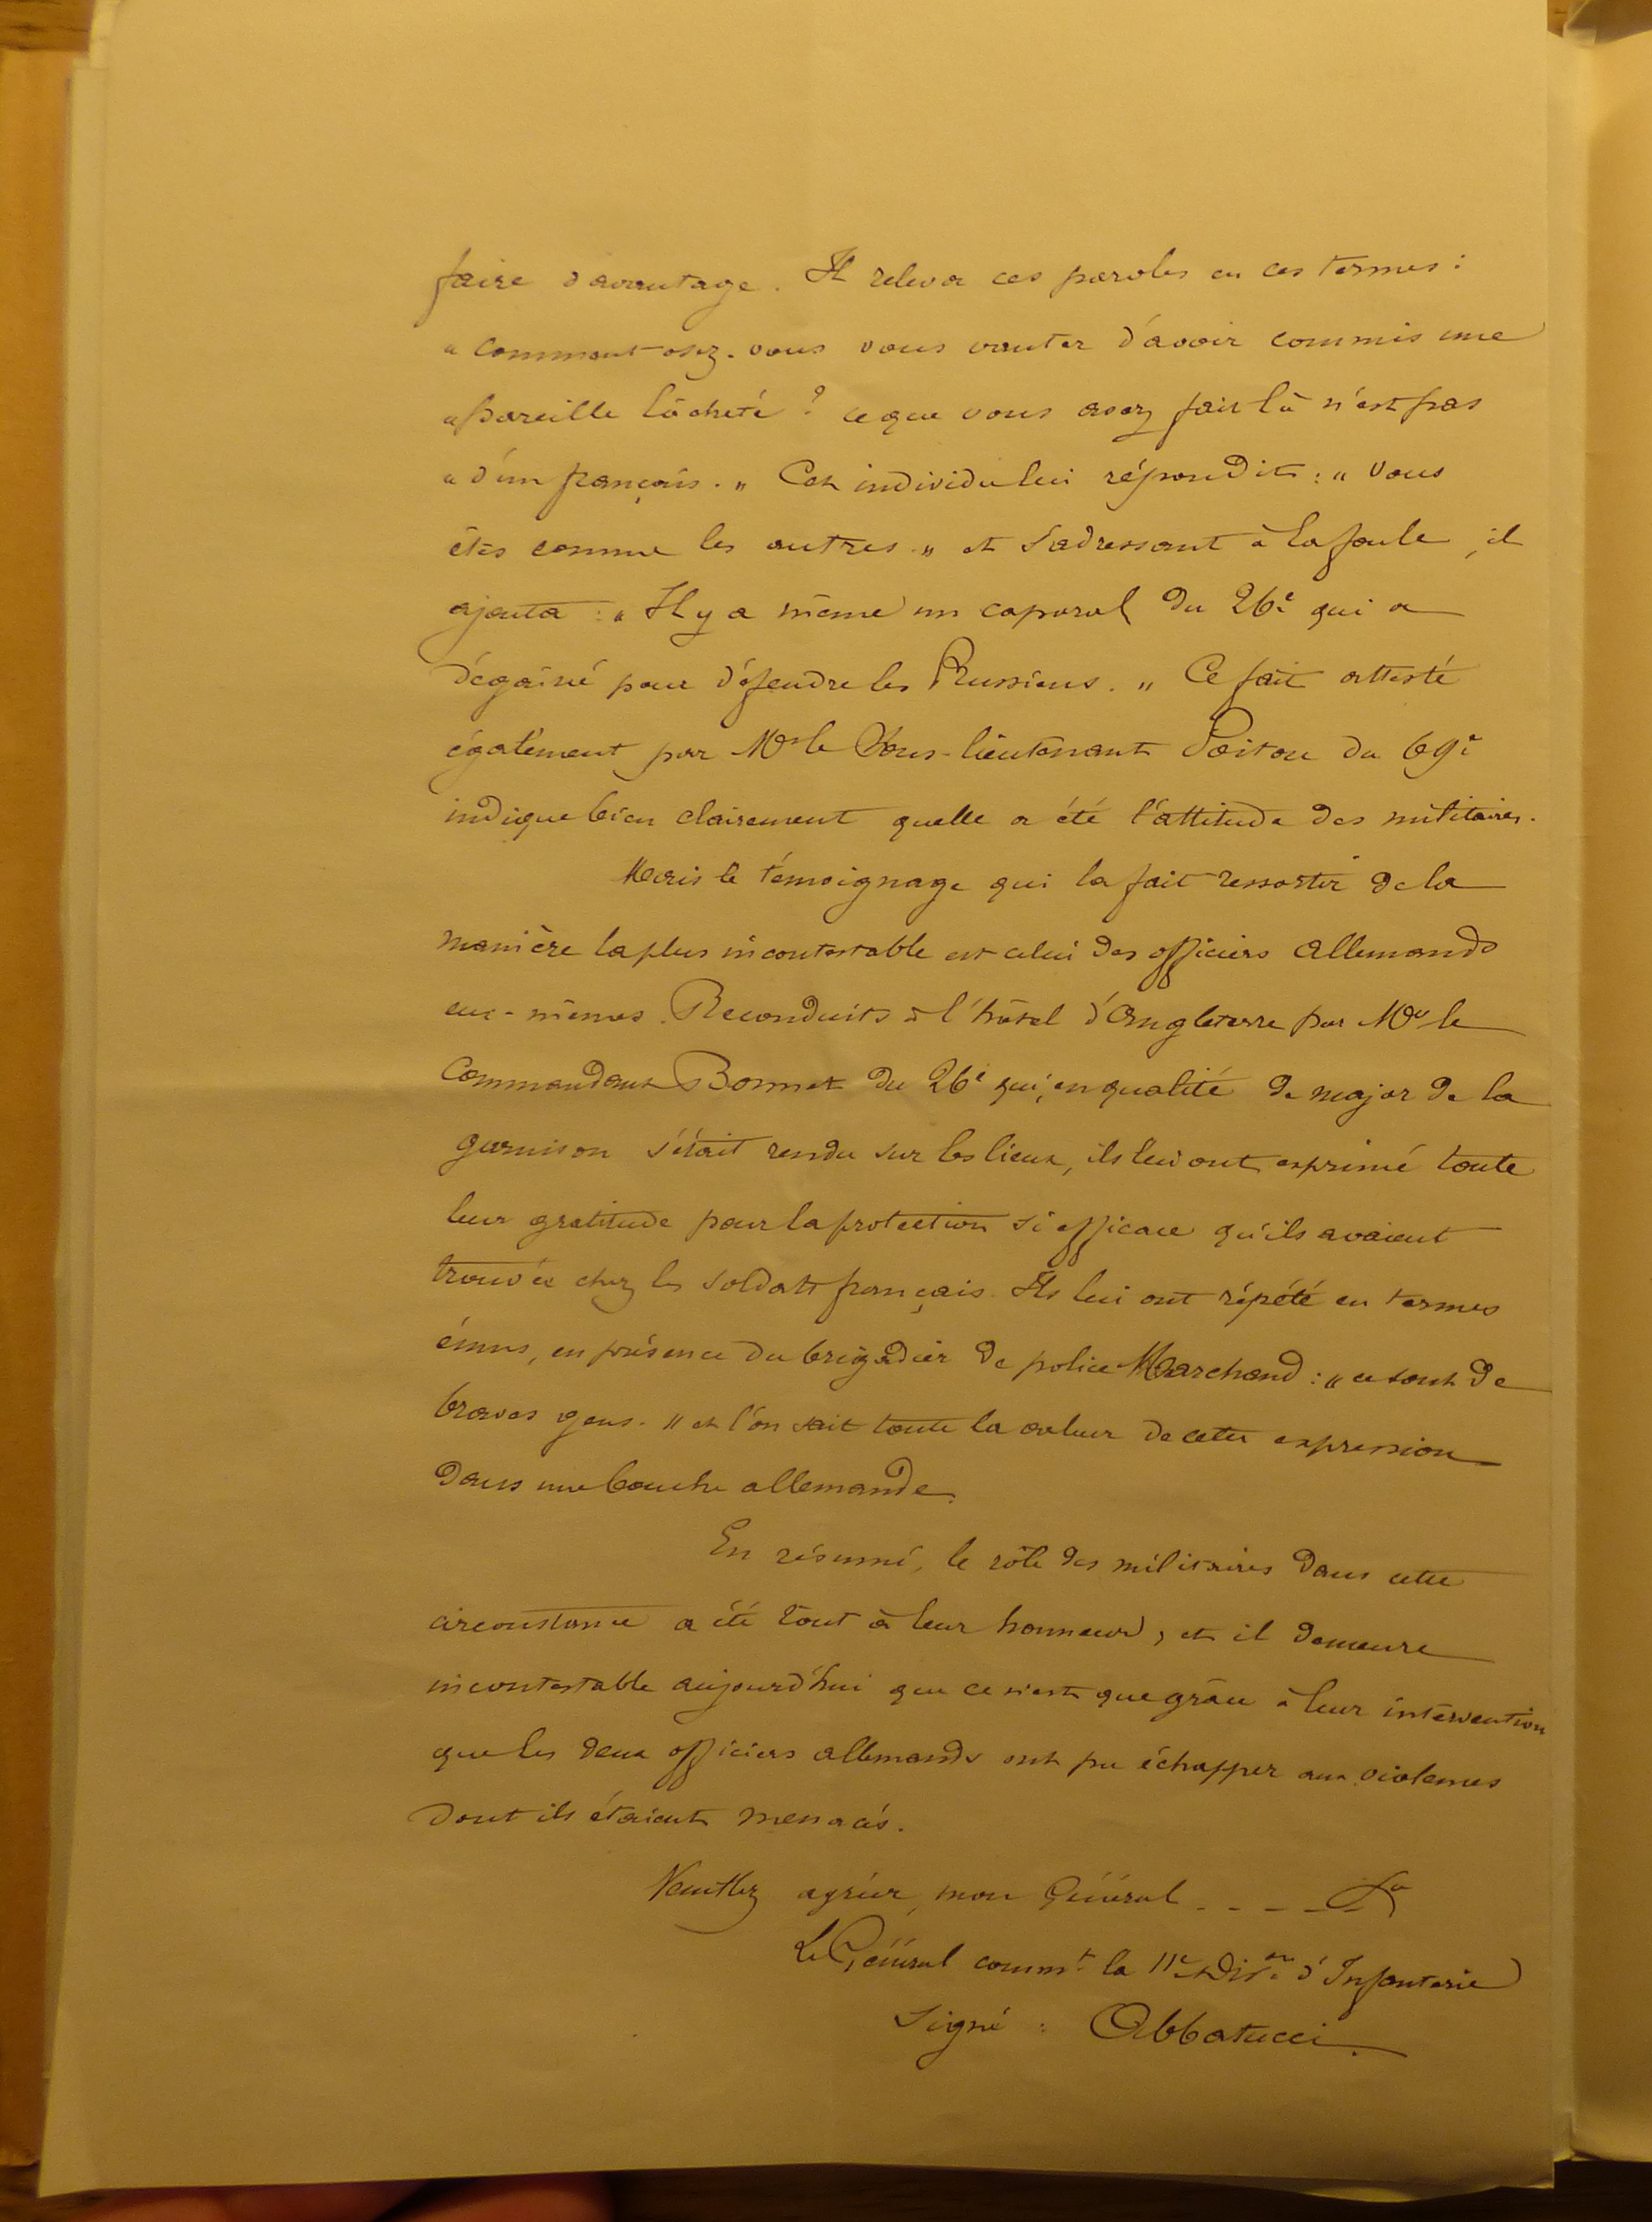 faire davantage. Il releva ces paroles en ces termes :
« comment osez-vous vous vanter d'avoir commis une
« pareille lâcheté ? ce que vous avez fait là n'est pas
« d'un français. » Cet individu lui répondit : « vous
êtes comme les autres » et s'adressant à la foule, il
ajouta : « Il y a même un caporal du 26e qui a
dégainé pour défendre les Prussiens. » Ce fait attesté
également par Mr le Sous-lieutenant Poitou du 69e
indique bien clairement quelle a été l'attitude des militaires.
Mais le témoignage qui la fait ressortir de la
manière la plus incontestable est celui des officiers allemands
eux-mêmes. Reconduits à l'hôtel d'Angleterre par Mr le
Commandant Bonnet du 26e qui, en qualité de major de la
garnison s'était rendu sur les lieux, ils lui ont exprimé toute
leur gratitude pour la protection si efficace qu'ils avaient
trouvée chez les soldats français. Ils lui ont répété en termes
émus, en présence du brigadier de police Marchand : « ce sont de
braves gens. » et l'on sait toute la valeur de cette expression
dans une bouche allemande.
En résumé, le rôle des militaires dans cette
circonstance a été tout à leur honneur, et il demeure
incontestable aujourd'hui que ce n'est que grâce à leur intervention
que les deux officiers allemands ont pu échapper aux violences
dont ils étaient menacés.
Veuillez agréer, mon Général - - - - -
Le Général commt la 11e Divon d'Infanterie
Signé : Abbatucci.